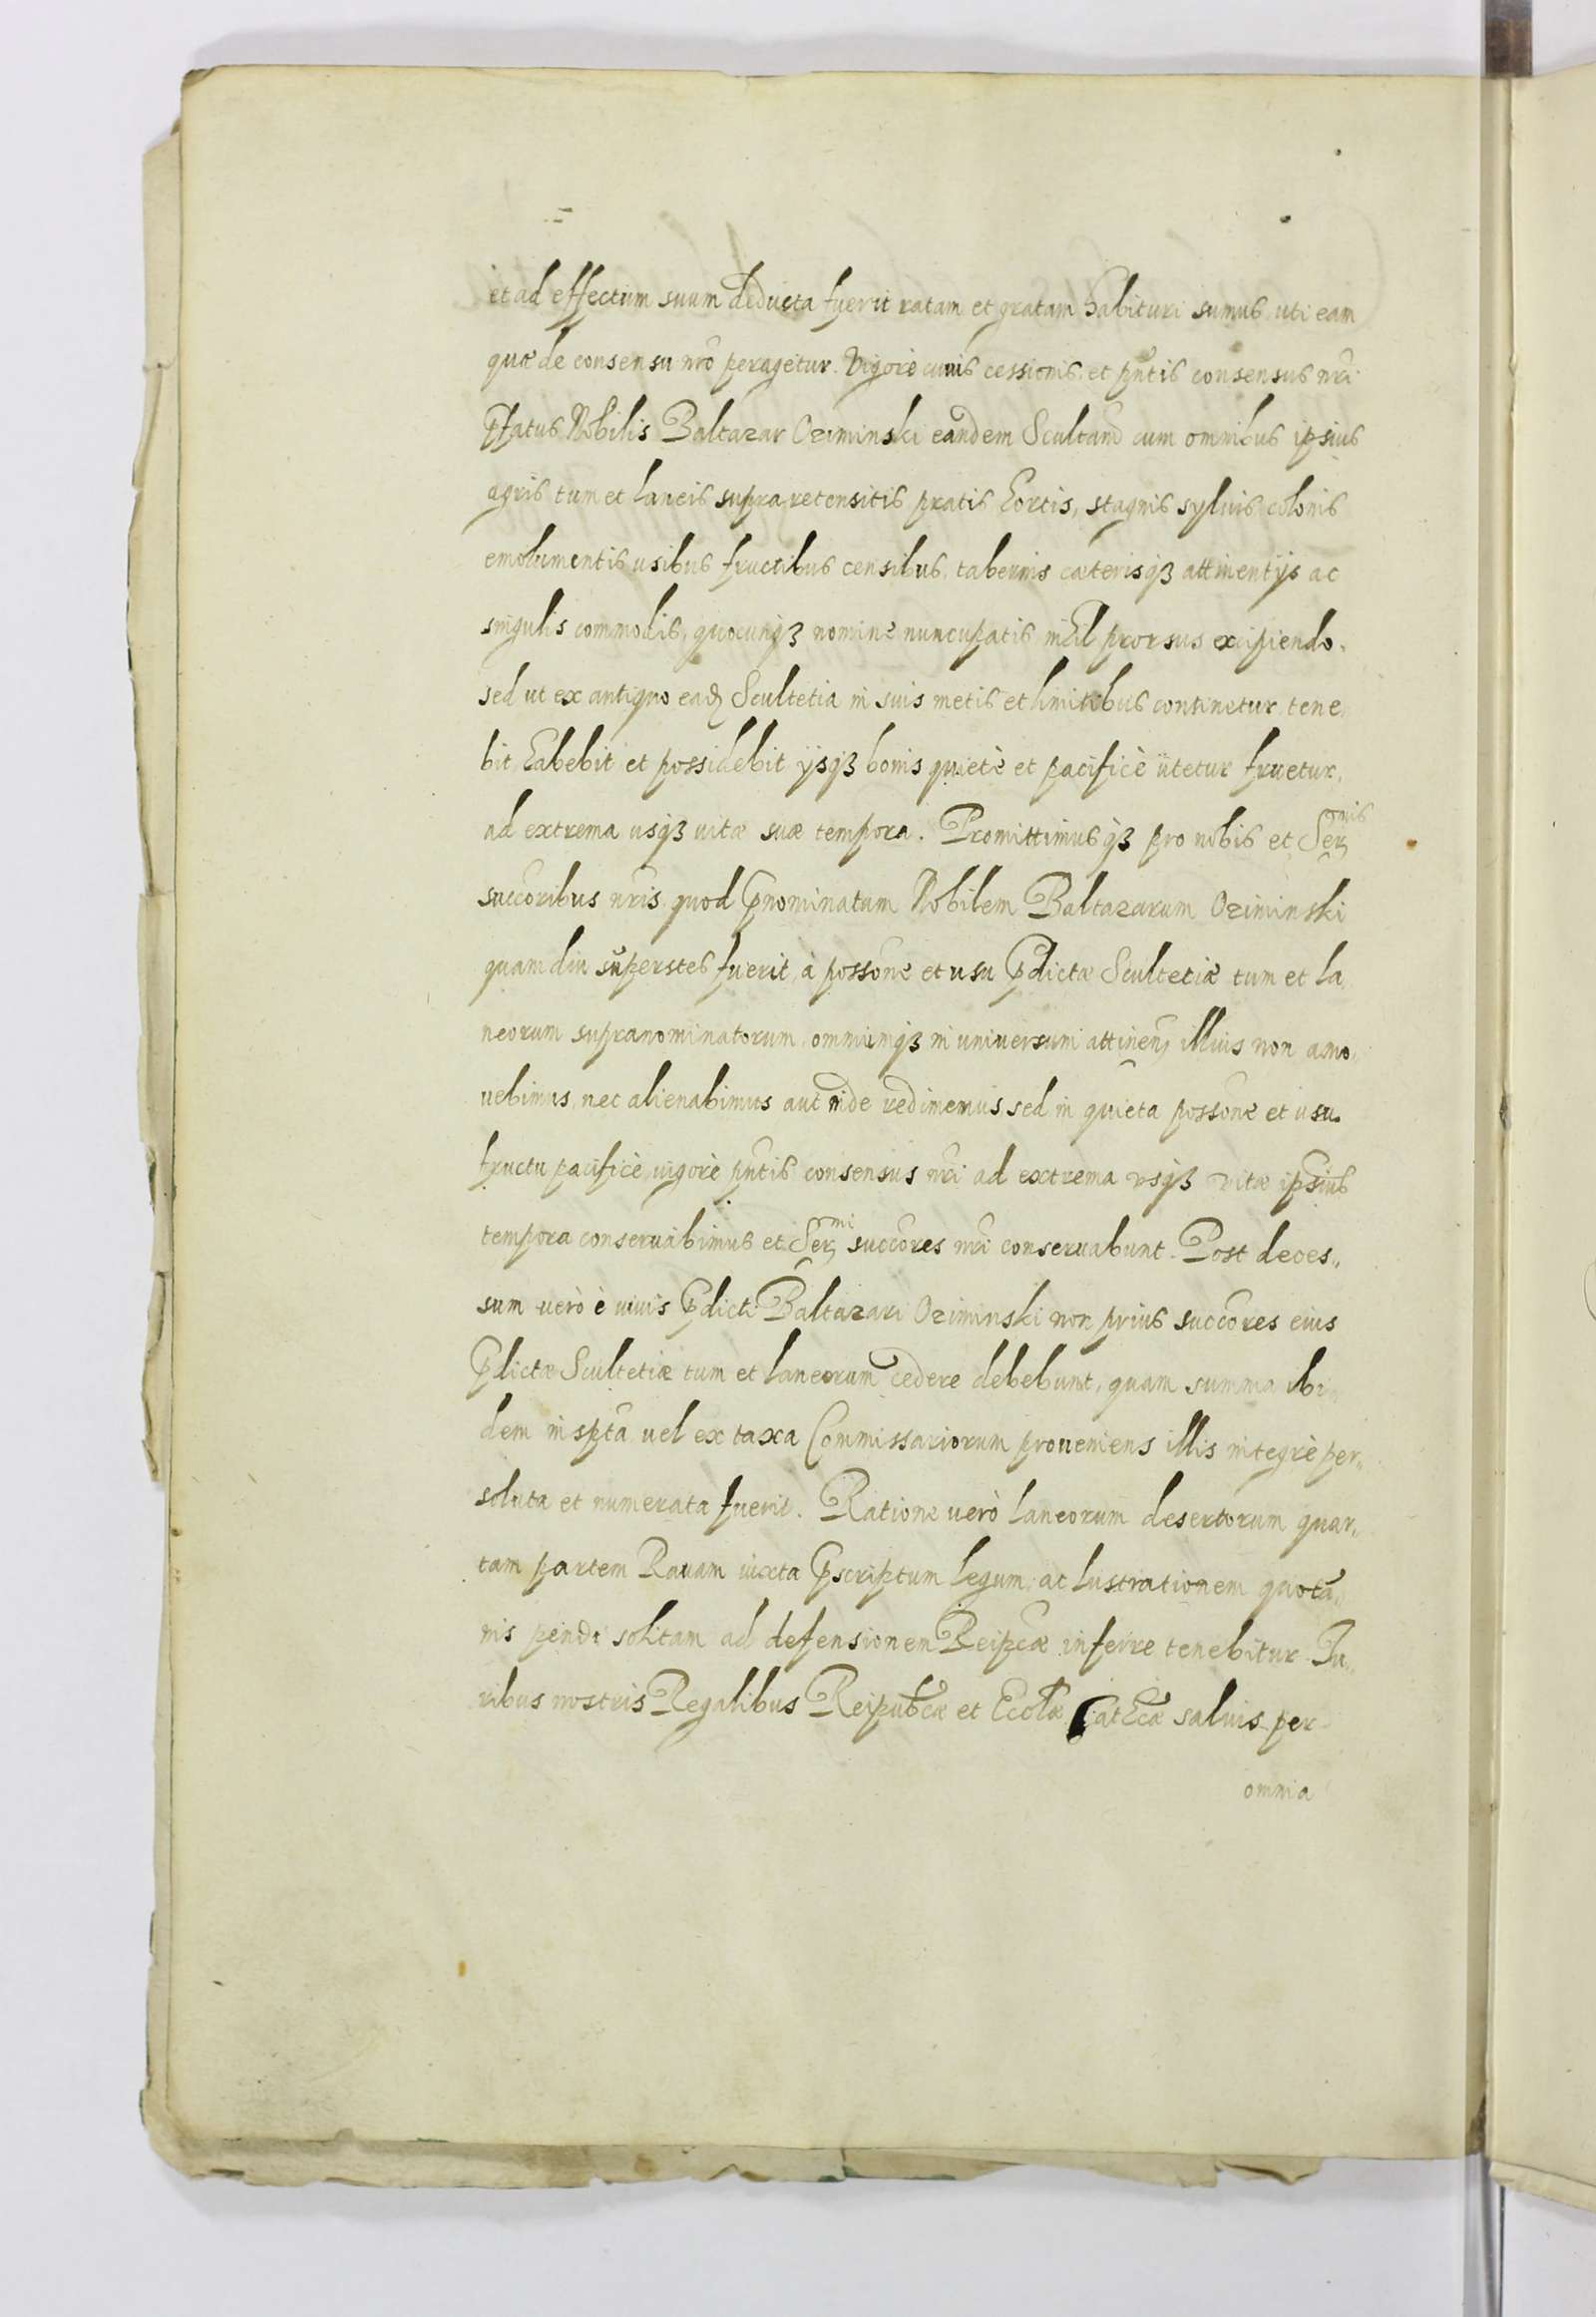 et ad effectum suum deducta fuerit ratam et gratam habituri sumus uti eam
quæ de consensu nrõ peragetur. Vigore cuius cessionis et pñtis consensus nri
Pfatus Nobilis Baltazar Oziminski eandem Scultam̃ cum omnibus ipsius
agris tum et laneis supra recensitis pratis hortis, stagnis syluis colonis
emolumentis usibus fructibus censibus, tabernis cæterisqȝ attinentijs ac
singulis commodis, quocunqȝ nomine nuncupatis nihil prorsus excipiendo.
sed ut ex antiquo eadꝫ Scultetia in suis metis et limitibus continetur tene
bit habebit et possidebit ijsqȝ bonis quietè et pacificè utetur fruetur,
ad extrema usqȝ uitæ suæ tempora. Promittimusqȝ pro nobis et Serꝫ mis
succoribus nris quod Pnominatum Nobilem Baltazarum Oziminski
quam diu superstes fuerit, à possone et usu Pdictæ Scultetiæ tum et la
neorum supranominatorum omniumqȝ in uniuersum attinenꝫ illius non amo
uebimus, nec alienabimus aut inde redimemus sed in quieta possone et usu
fructu pacificè, uigore pñtis consensus nri ad extrema vsqȝ vitæ ipsius
tempora conseruabimus et Serꝫ mi succores nri conseruabunt. Post deces„
sum uerò è uiuis Pdicti Baltazari Oziminski non prius succores eius
Pdictæ Scultetiæ tum et laneorum cedere debebunt, quam summa ibi
dem inspta uel ex taxa Commissariorum proueniens illis integrè per„
soluta et numerata fuerit. Ratione uerò laneorum desertorum quar„
tam partem Rauam iuxta Pscriptum legum, ac lustrationem quotã„
nis pendi solitam ad defensionem Reipcæ inferre tenebitur Iu„
ribus nostris Regalibus Reipubcæ et Ecclæ Cathcæ saluis per
omnia